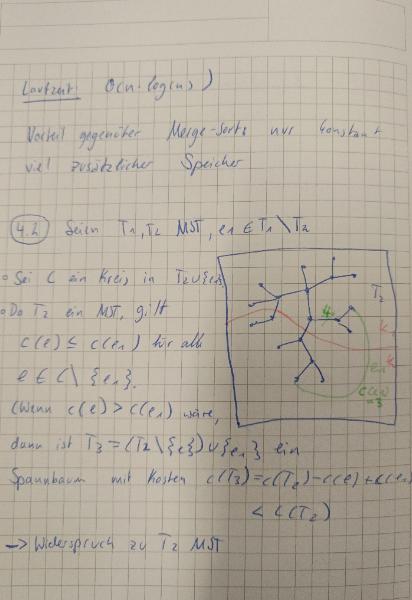 Laufzeit: O(n·log(n))
Vorteil gegenüber Merge-Sort: nur konstant
viel zusätzlicher Speicher
4.2) Seien T1, T2 MST, e1 ∈ T1 \ T2
• Sei C ein Kreis in T2 ∪ {e1}
• Da T2 ein MST, gilt
c(e) ≤ c(e1) für alle
e ∈ C \ {e1}.
(Wenn c(e) > c(e1) wäre,
dann ist T3 = (T2 \ {e}) ∪ {e1} ein
Spannbaum mit Kosten c(T3) = c(T2) - c(e) + c(e1)
< c(T2)
→ Widerspruch zu T2 MST
T2
e1